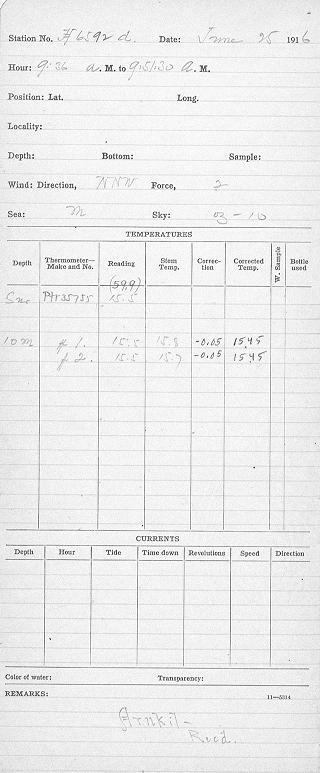 Station No. #6592 d. Date: June 25 1916
Hour: 9:36 a. M. to 9:51:30 a. M.
Position: Lat. Long.
Locality:
Depth: Bottom: Sample:
Wind: Direction, Force, 2
Sea: M Sky: - 10
TEMPERATURES
Depth Thermometer—Make and No. Reading Stem Temp. Correction Corrected Temp. W. Sample Bottle used
(59.9)
15.5
10 m # 1. 15.5 15.8 -0.05 15.45
# 2. 15.5 15.7 -0.05 15.45
CURRENTS
Depth Hour Tide Time down Revolutions Speed Direction
Color of water: Transparency:
REMARKS: 11—5314